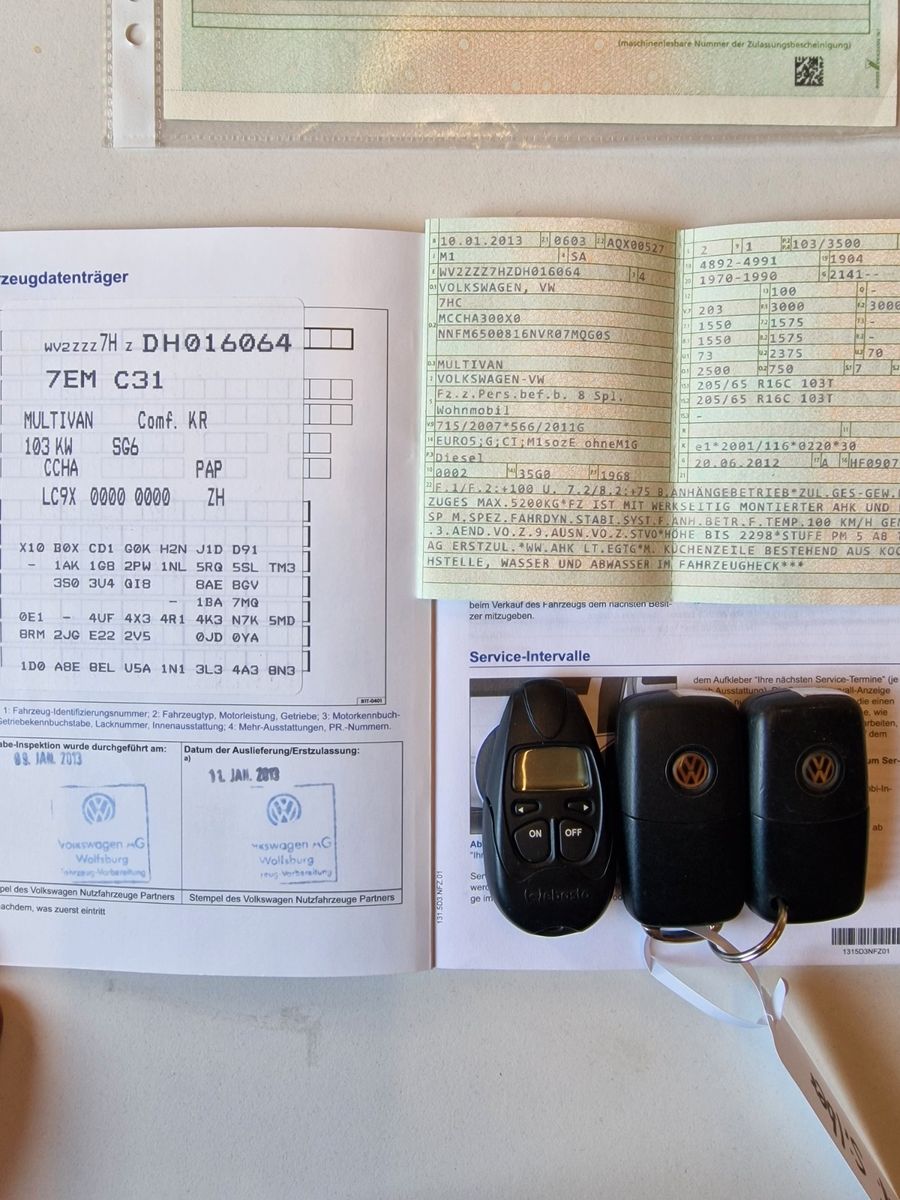 (maschinenlesbare Nummer der Zulassungsbescheinigung)
rzeugdatenträger
WV2ZZZ7H Z DH016064
7EM C31
MULTIVAN Comf. KR
103 KW SG6
CCHA PAP
LC9X 0000 0000 ZH
X10 B0X CD1 G0K H2N J1D D91
- 1AK 1G8 2PW 1NL 5RQ 5SL TM3
3S0 3U4 QI8 8AE BGV
- 1BA 7MQ
0E1 - 4UF 4X3 4R1 4K3 N7K 5MD
8RM 2JG E22 2V5 0JD 0YA
1D0 A8E BEL U5A 1N1 3L3 4A3 8N3
BIT-0401
1: Fahrzeug-Identifizierungsnummer; 2: Fahrzeugtyp, Motorleistung, Getriebe; 3: Motorkennbuch-
Getriebekennbuchstabe, Lacknummer, Innenausstattung; 4: Mehr-Ausstattungen, PR.-Nummern.
abe-Inspektion wurde durchgeführt am:
09. JAN. 2013
Volkswagen AG
Wolfsburg
Fahrzeug-Vorbereitung
pel des Volkswagen Nutzfahrzeuge Partners
Datum der Auslieferung/Erstzulassung:
a)
11. JAN. 2013
kswagen AG
Wolfsburg
zeug-Vorbereitung
Stempel des Volkswagen Nutzfahrzeuge Partners
achdem, was zuerst eintritt
B 10.01.2013 2.1 0603 2.2 AQX00527
J M1 4 SA
E WV2ZZZ7HZDH016064 3 4
D.1 VOLKSWAGEN, VW
7HC
D.2 MCCHA300X0
NNFM6500816NVR07MQG0S
D.3 MULTIVAN
2 VOLKSWAGEN-VW
5 Fz.z.Pers.bef.b. 8 Spl.
Wohnmobil
V.9 715/2007*566/2011G
14 EURO5;G;CI;M1sozE ohneM1G
P.3 Diesel
10 0002 14.1 35G0 P.1 1968
L 2 9 1 P.2 P.4 103/3500
18 4892-4991 19 1904
20 1970-1990 G 2141--
12 - 13 100 Q -
V.7 203 F.1 3000 F.2 3000
7.1 1550 7.2 1575 7.3 -
8.1 1550 8.2 1575 8.3 -
U.1 73 U.2 2375 U.3 70
O.1 2500 O.2 750 S.1 7 S.2
15.1 205/65 R16C 103T
15.2 205/65 R16C 103T
15.3 -
R 11
K e1*2001/116*0220*30
6 20.06.2012 17 A 16 HF0907
21
22 F.1/F.2:+100 U. 7.2/8.2:+75 B.ANHÄNGEBETRIEB*ZUL.GES-GEW.
ZUGES MAX.5200KG*FZ IST MIT WERKSEITIG MONTIERTER AHK UND
SP M.SPEZ.FAHRDYN.STABI.SYST.F.ANH.BETR.F.TEMP.100 KM/H GE
.3.AEND.VO.Z.9.AUSN.VO.Z.STVO*HÖHE BIS 2298*STUFE PM 5 AB T
AG ERSTZUL.*WW.AHK LT.EGTG*M. KÜCHENZEILE BESTEHEND AUS KOC
HSTELLE, WASSER UND ABWASSER IM FAHRZEUGHECK***
beim Verkauf des Fahrzeugs dem nächsten Besit-
zer mitzugeben.
Service-Intervalle
dem Aufkleber "Ihre nächsten Service-Termine" (je
Ausstattung).
die einen
wie
arbeiten,
dem
um Ser-
bi-In-
ab
Ab
"Ihr
Ser
werd
ge im
ON OFF
webasto
131.5D3.NFZ.01
1315D3NFZ01
Silber